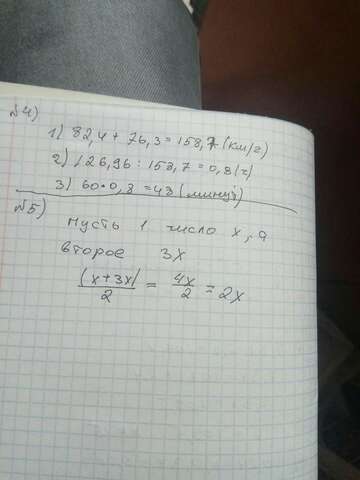 №4)
1) 82,4 + 76,3 = 158,7 (км/г)
2) 126,96 : 158,7 = 0,8 (г)
3) 60 · 0,8 = 48 (минут)
№5)
Пусть 1 число x, а
второе 3x
(x+3x)/2 = 4x/2 = 2x